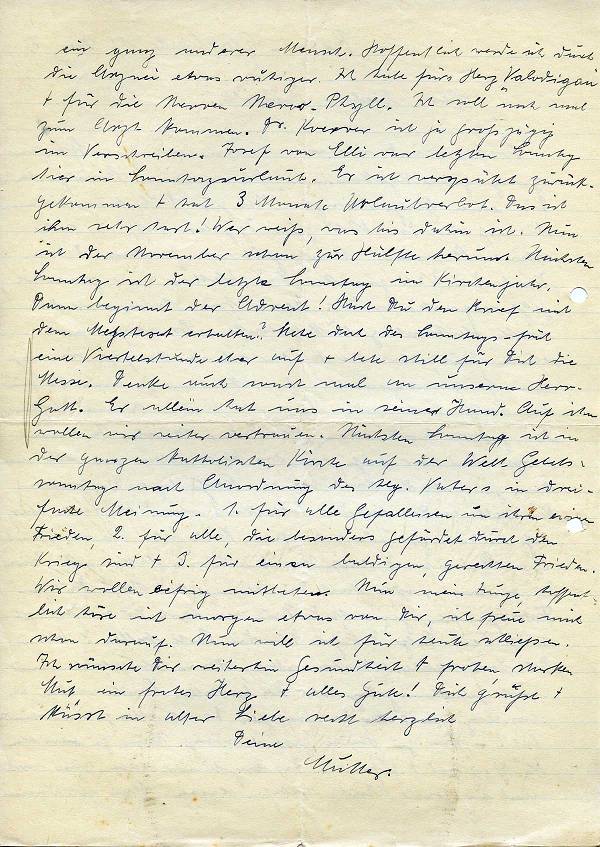 ein ganz anderer Mensch. Hoffentlich werde ich durch
die Arznei etwas ruhiger. Ich habe fürs Herz Valodigan
+ für die Nerven Nervo-Phyll. Ich soll noch mal
zum Arzt kommen. Dr. ist ja großzügig
im Verschreiben. Josef von Elli war letzten Sonntag
hier in Sonntagsurlaub. Er ist verspätet zurück-
gekommen + hat 3 Monate Urlaubverbot. Das ist
ihm sehr hart! Wer weiß, was bis dahin ist. Nun
ist der November schon zur Hälfte herum. Nächsten
Sonntag ist der letzte Sonntag im Kirchenjahr.
Dann beginnt der Advent! Hast Du den Brief mit
dem Messtext erhalten? Stehe doch des Sonntags früh
eine Viertelstunde eher auf + bete still für Dich die
Messe. Denke auch sonst mal an unseren Herr-
Gott. Er allein hat uns in seiner Hand. Auf ihn
wollen wir weiter vertrauen. Nächsten Sonntag ist in
der ganzen katholischen Kirche auf der Welt Gebets-
sonntag nach Anordnung des hlg. Vaters in drei-
facher Meinung. 1. für alle Gefallenen um ihren ewigen
Frieden, 2. für alle, die besonders gefährdet durch den
Krieg sind + 3. für einen baldigen, gerechten Frieden.
Wir wollen eifrig mitbeten. Nun, mein Junge, hoffent-
lich höre ich morgen etwas von Dir, ich freue mich
schon darauf. Nun will ich für heute schließen.
Ich wünsche Dir weiterhin Gesundheit + frohen, starken
Mut, ein frohes Herz + alles Gute! Dich grüßt +
küsst in alter Liebe recht herzlich
Deine
Mutter.